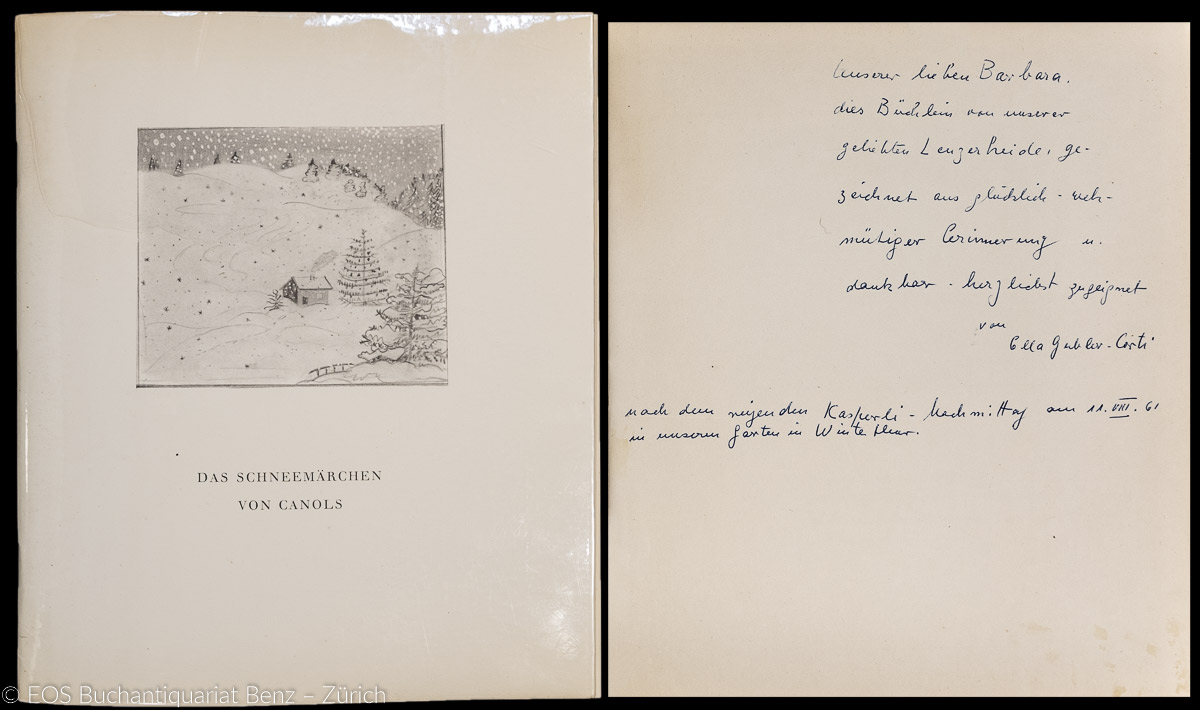 DAS SCHNEEMÄRCHEN
VON CANOLS
© EOS Buchantiquariat Benz – Zürich
Unserer lieben Barbara.
dies Büchlein von unserer
geliebten Lenzerheide, ge-
zeichnet aus glücklich - weh-
mütiger Erinnerung u.
dankbar - herzlichst zugeignet
von
Ella Gubler-Corti
nach dem reizenden Kasperli - Nachmittag am 11. VIII. 61
in unserem Garten in Winterthur.